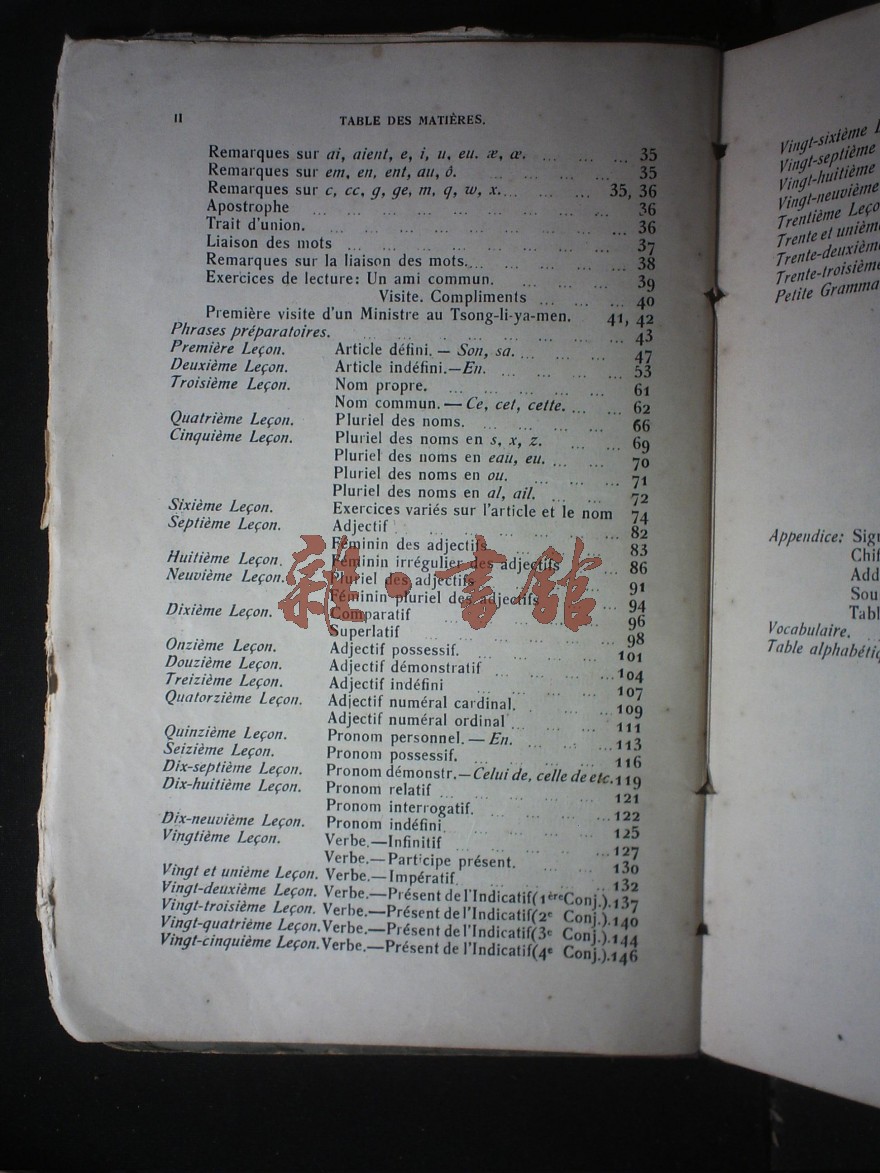 II
TABLE DES MATIÈRES.
Remarques sur ai, aient, e, i, u, eu. æ, œ. ... ... ... 35
Remarques sur em, en, ent, au, ô. ... ... ... ... 35
Remarques sur c, cc, g, ge, m, q, w, x. ... ... ... 35, 36
Apostrophe ... ... ... ... ... ... ... ... ... 36
Trait d'union. ... ... ... ... ... ... ... ... 36
Liaison des mots ... ... ... ... ... ... ... ... 37
Remarques sur la liaison des mots. ... ... ... ... ... 38
Exercices de lecture: Un ami commun. ... ... ... ... 39
Visite. Compliments ... ... ... 40
Première visite d'un Ministre au Tsong-li-ya-men. 41, 42
Phrases préparatoires. ... ... ... ... ... ... ... 43
Première Leçon. Article défini. — Son, sa. ... ... ... ... 47
Deuxième Leçon. Article indéfini.—En. ... ... ... ... 53
Troisième Leçon. Nom propre. ... ... ... ... ... 61
Nom commun. — Ce, cet, cette. ... ... 62
Quatrième Leçon. Pluriel des noms. ... ... ... ... 66
Cinquième Leçon. Pluriel des noms en s, x, z. ... ... 69
Pluriel des noms en eau, eu. ... ... 70
Pluriel des noms en ou. ... ... ... 71
Pluriel des noms en al, ail. ... ... 72
Sixième Leçon. Exercices variés sur l'article et le nom 74
Septième Leçon. Adjectif ... ... ... ... ... ... 82
Féminin des adjectifs ... ... ... 83
Huitième Leçon. Féminin irrégulier des adjectifs ... 86
Neuvième Leçon. Pluriel des adjectifs ... ... ... 91
Féminin pluriel des adjectifs ... ... 94
Dixième Leçon. Comparatif ... ... ... ... ... 96
Superlatif ... ... ... ... ... 98
Onzième Leçon. Adjectif possessif. ... ... ... ... 101
Douzième Leçon. Adjectif démonstratif ... ... ... ... 104
Treizième Leçon. Adjectif indéfini ... ... ... ... 107
Quatorzième Leçon. Adjectif numéral cardinal. ... ... ... 109
Adjectif numéral ordinal ... ... ... 111
Quinzième Leçon. Pronom personnel. — En. ... ... ... 113
Seizième Leçon. Pronom possessif. ... ... ... ... 116
Dix-septième Leçon. Pronom démonstr.—Celui de, celle de etc. 119
Dix-huitième Leçon. Pronom relatif ... ... ... ... 121
Pronom interrogatif. ... ... ... ... 122
Dix-neuvième Leçon. Pronom indéfini ... ... ... ... 125
Vingtième Leçon. Verbe.—Infinitif ... ... ... ... 127
Verbe.—Participe présent. ... ... ... 130
Vingt et unième Leçon. Verbe.—Impératif. ... ... ... ... 132
Vingt-deuxième Leçon. Verbe.—Présent de l'Indicatif(1ère Conj.).137
Vingt-troisième Leçon. Verbe.—Présent de l'Indicatif(2e Conj.).140
Vingt-quatrième Leçon. Verbe.—Présent de l'Indicatif(3e Conj.).144
Vingt-cinquième Leçon. Verbe.—Présent de l'Indicatif(4e Conj.).146
雜·書館
Vingt-sixième
Vingt-septième
Vingt-huitième
Vingt-neuvième
Trentième Leço
Trente et unièm
Trente-deuxièm
Trente-troisième
Petite Gramma
Appendice: Sig
Chif
Add
Sou
Tabl
Vocabulaire.
Table alphabétiq